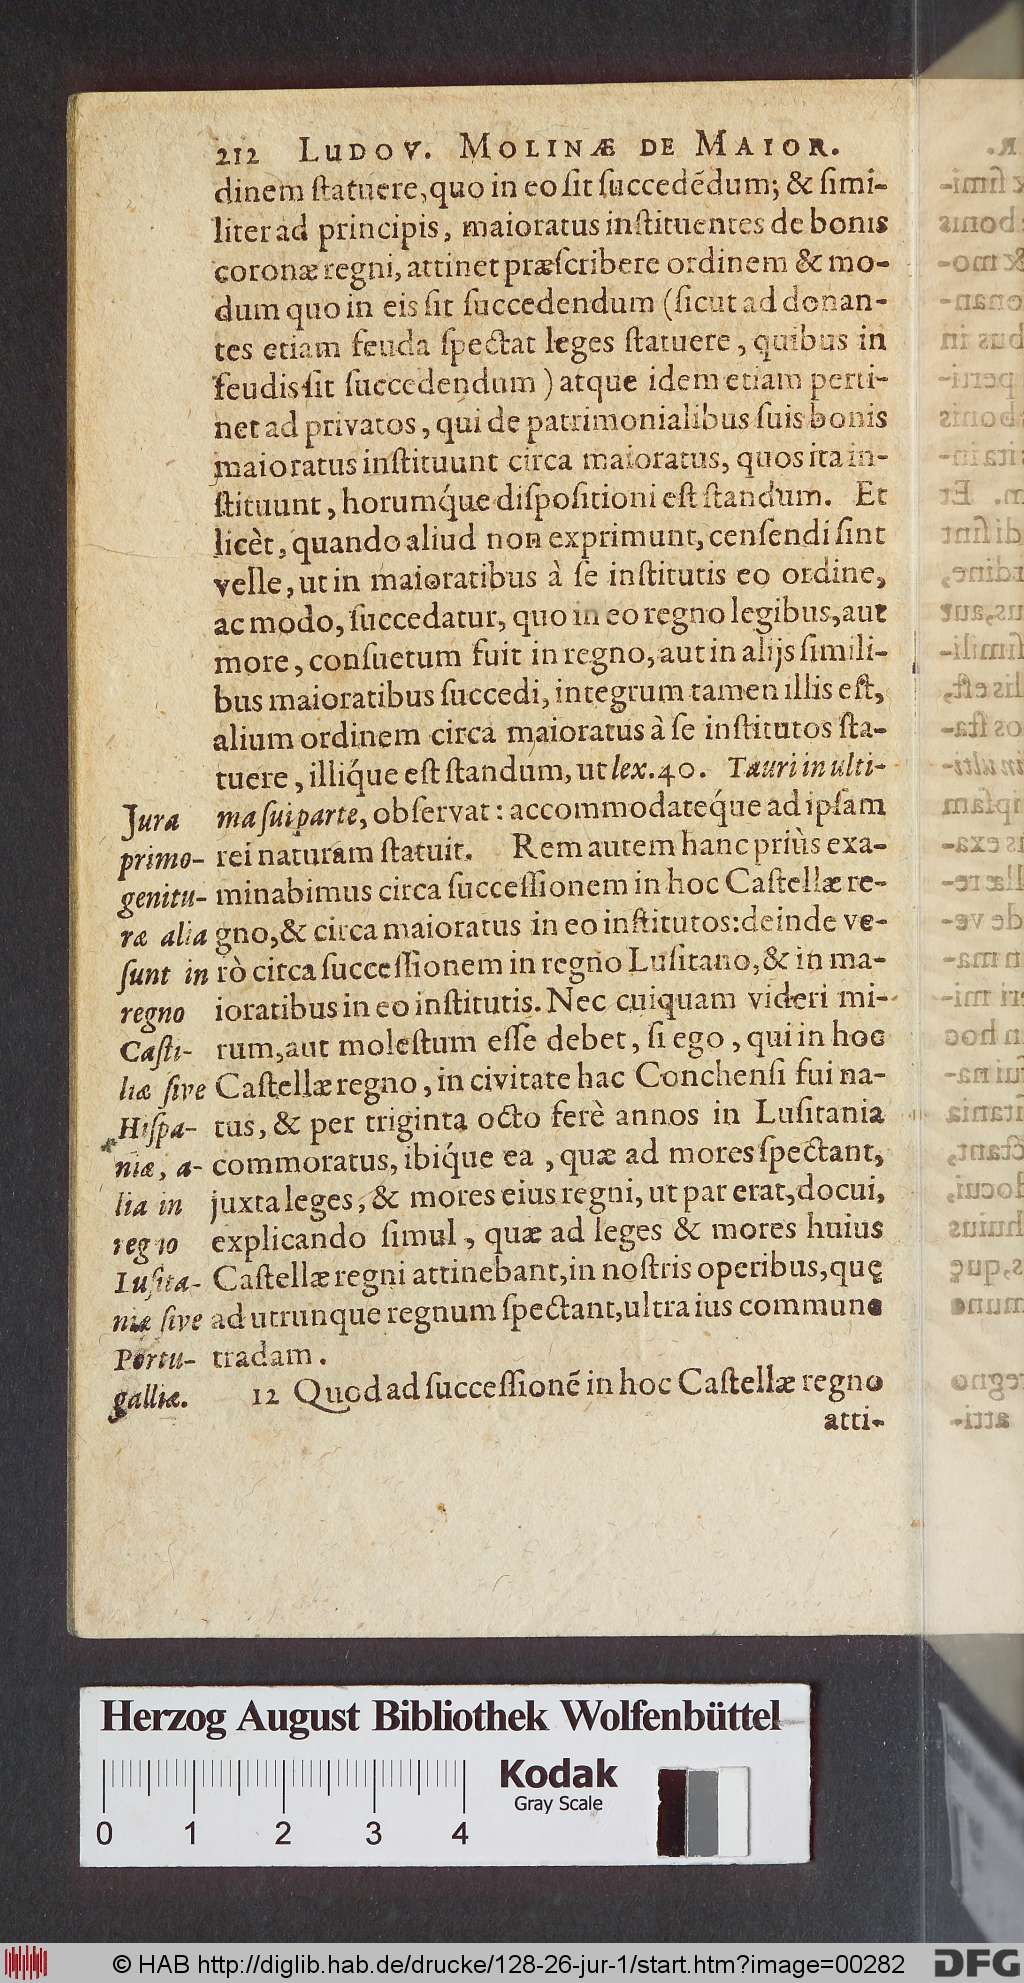 212 LUDOV. MOLINÆ DE MAIOR.
dinem ſtatuere, quo in eo ſit ſuccedẽdum; & ſimi-
liter ad principis, maioratus inſtituentes de bonis
coronæ regni, attinet præſcribere ordinem & mo-
dum quo in eis ſit ſuccedendum (ſicut ad donan-
tes etiam feuda ſpectat leges ſtatuere, quibus in
feudis ſit ſuccedendum) atque idem etiam perti-
net ad privatos, qui de patrimonialibus ſuis bonis
maioratus inſtituunt circa maioratus, quos ita in-
ſtituunt, horumq́ue diſpoſitioni eſt ſtandum. Et
licèt, quando aliud non exprimunt, cenſendi ſint
velle, ut in maioratibus à ſe inſtitutis eo ordine,
ac modo, ſuccedatur, quo in eo regno legibus, aut
more, conſuetum fuit in regno, aut in alijs ſimili-
bus maioratibus ſuccedi, integrum tamen illis eſt,
alium ordinem circa maioratus à ſe inſtitutos ſta-
tuere, illiq́ue eſt ſtandum, ut lex. 40. Tauri in ulti-
ma ſui parte, obſervat: accommodateq́ue ad ipſam
rei naturam ſtatuit. Rem autem hanc priùs exa-
minabimus circa ſucceſſionem in hoc Caſtellæ re-
gno, & circa maioratus in eo inſtitutos: deinde ve-
rò circa ſucceſſionem in regno Luſitano, & in ma-
ioratibus in eo inſtitutis. Nec cuiquam videri mi-
rum, aut moleſtum eſſe debet, ſi ego, qui in hoc
Caſtellæ regno, in civitate hac Conchenſi fui na-
tus, & per triginta octo ferè annos in Luſitania
commoratus, ibiq́ue ea, quæ ad mores ſpectant,
juxta leges, & mores eius regni, ut par erat, docui,
explicando ſimul, quæ ad leges & mores huius
Caſtellæ regni attinebant, in noſtris operibus, quę
ad utrunque regnum ſpectant, ultra ius commune
tradam.
12 Quod ad ſucceſſionẽ in hoc Caſtellæ regno
atti-
Jura
primo-
genitu-
ræ alia
ſunt in
regno
Caſti-
liæ ſive
Hiſpa-
niæ, a-
lia in
regno
Luſita-
niæ ſive
Portu-
galliæ.
Herzog August Bibliothek Wolfenbüttel
Kodak
Gray Scale
0 1 2 3 4
© HAB http://diglib.hab.de/drucke/128-26-jur-1/start.htm?image=00282
DFG